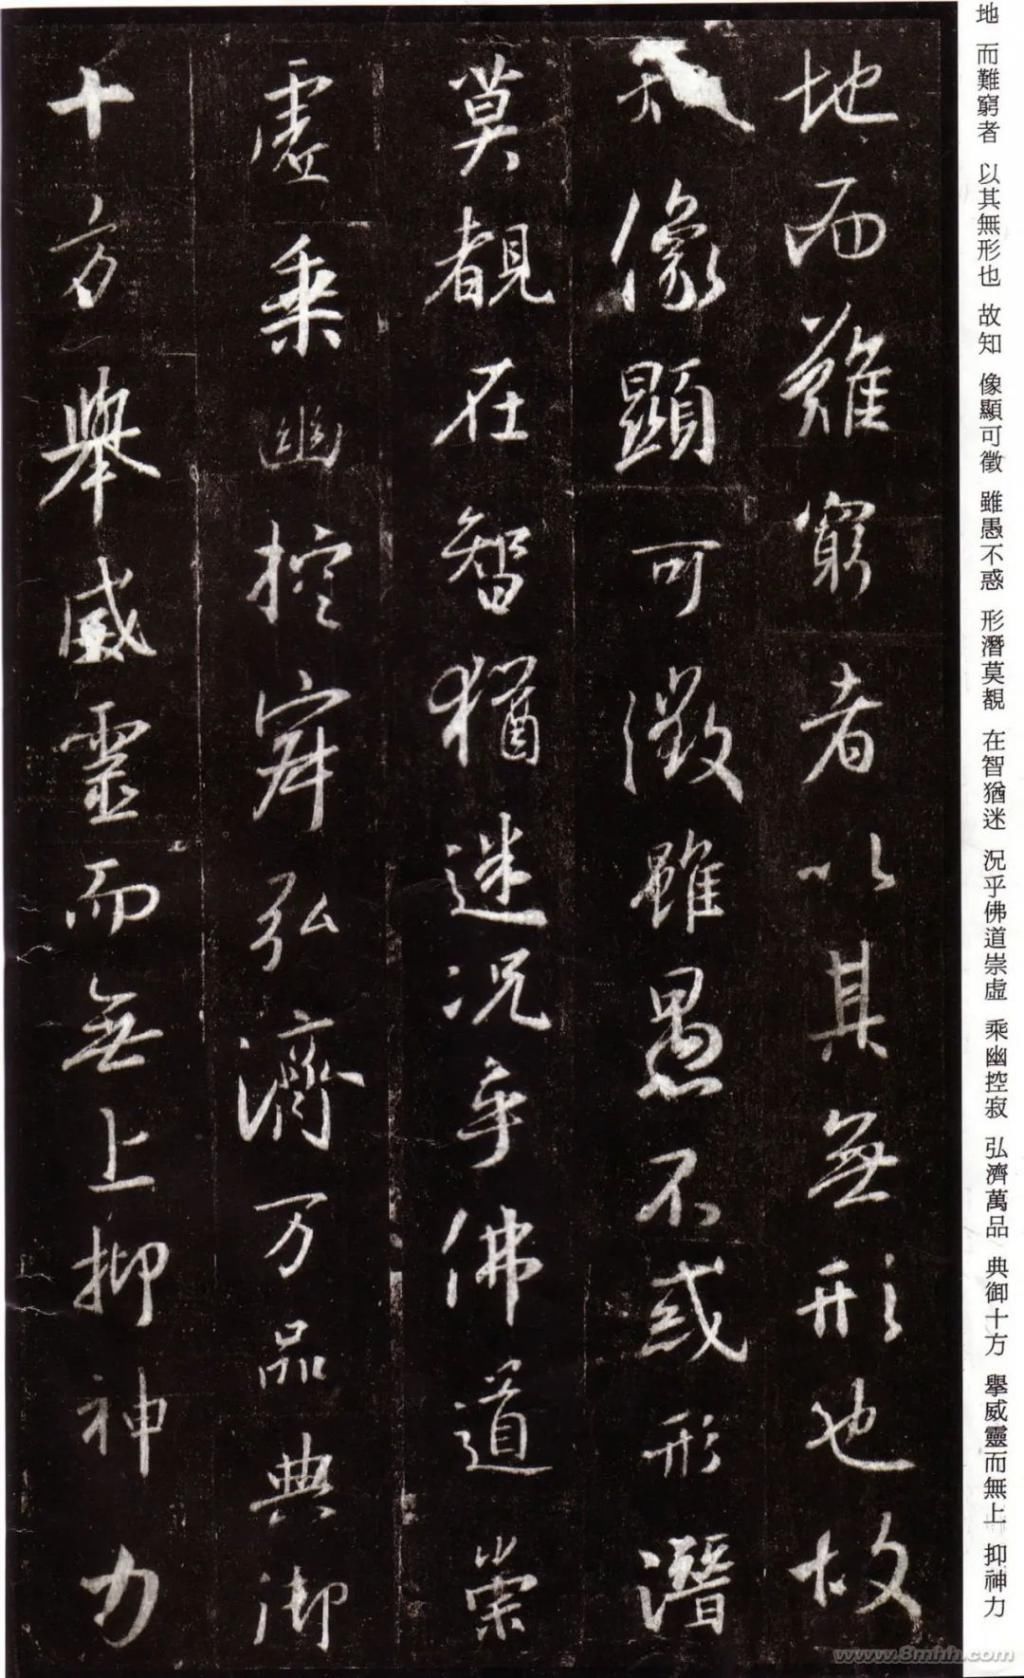 地 而難窮者 以其無形也 故知 像顯可徵 雖愚不惑 形潛莫覩 在智猶迷 況乎佛道崇虛 乘幽控寂 弘濟萬品 典御十方 擧威靈而無上 抑神力
地而難窮者以其無形也故
像顯可徵雖愚不惑形潛
莫覩在智猶迷況乎佛道崇
虛乘幽控寂弘濟万品典御
十方擧威靈而無上抑神力
www.8mhh.com